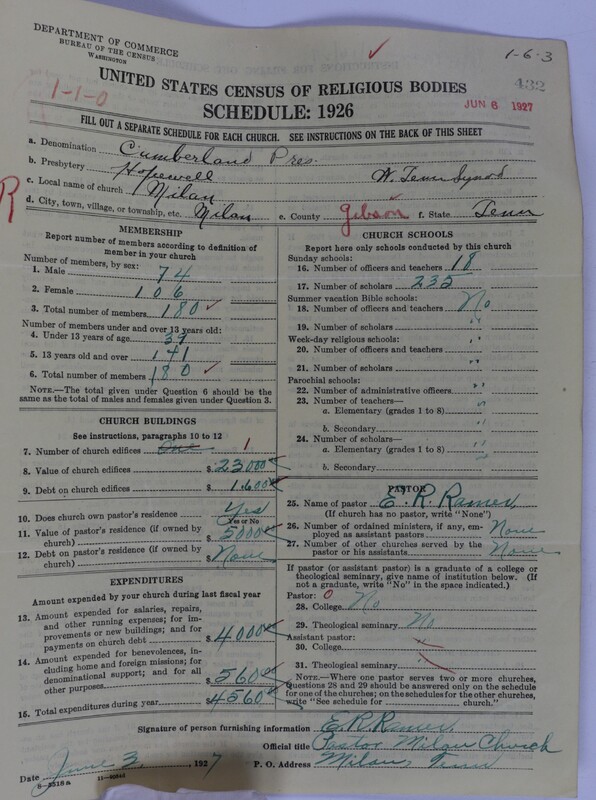 DEPARTMENT OF COMMERCE
BUREAU OF THE CENSUS
WASHINGTON
1-6-3
432
1-1-0
JUN 6 1927
UNITED STATES CENSUS OF RELIGIOUS BODIES
SCHEDULE: 1926
FILL OUT A SEPARATE SCHEDULE FOR EACH CHURCH. SEE INSTRUCTIONS ON THE BACK OF THIS SHEET
a. Denomination Cumberland Pres.
b. Presbytery Hopewell W. Tenn Synod
c. Local name of church Milan
R
d. City, town, village, or township, etc. Milan e. County Gibson f. State Tenn
MEMBERSHIP
Report number of members according to definition of
member in your church
Number of members, by sex:
1. Male 74
2. Female 106
3. Total number of members 180
Number of members under and over 13 years old:
4. Under 13 years of age 39
5. 13 years old and over 141
6. Total number of members 180
NOTE.—The total given under Question 6 should be
same as the total of males and females given under Question 3.
CHURCH BUILDINGS
See instructions, paragraphs 10 to 12
7. Number of church edifices One 1
8. Value of church edifices $ 23000
9. Debt on church edifices $ 1,600
10. Does church own pastor's residence Yes
Yes or No
11. Value of pastor's residence (if owned by
church) $ 5000
12. Debt on pastor's residence (if owned by
church) $ None
EXPENDITURES
Amount expended by your church during last fiscal year
13. Amount expended for salaries, repairs,
and other running expenses; for im-
provements or new buildings; and for
payments on church debt $ 4000
14. Amount expended for benevolences, in-
cluding home and foreign missions; for
denominational support; and for all
other purposes $ 560
15. Total expenditures during year $ 4560
CHURCH SCHOOLS
Report here only schools conducted by this church
Sunday schools:
16. Number of officers and teachers 18
17. Number of scholars 235
Summer vacation Bible schools:
18. Number of officers and teachers No
19. Number of scholars "
Week-day religious schools:
20. Number of officers and teachers "
21. Number of scholars "
Parochial schools:
22. Number of administrative officers "
23. Number of teachers—
a. Elementary (grades 1 to 8) "
b. Secondary "
24. Number of scholars—
a. Elementary (grades 1 to 8) "
b. Secondary "
PASTOR
25. Name of pastor E. R. Ramer
(If church has no pastor, write "None")
26. Number of ordained ministers, if any, em-
ployed as assistant pastors None
27. Number of other churches served by the
pastor or his assistants None
If pastor (or assistant pastor) is a graduate of a college or
theological seminary, give name of institution below. (If
not a graduate, write "No" in the space indicated.)
Pastor: 0
28. College No
29. Theological seminary No
Assistant pastor:
30. College
31. Theological seminary
NOTE.—Where one pastor serves two or more churches,
Questions 28 and 29 should be answered only on the schedule
for one of the churches; on the schedules for the other churches,
write "See schedule for church."
Signature of person furnishing information E. R. Ramer
Official title Pastor Milan Church
Date June 3, 1927 P. O. Address Milan, Tenn
8-5318a